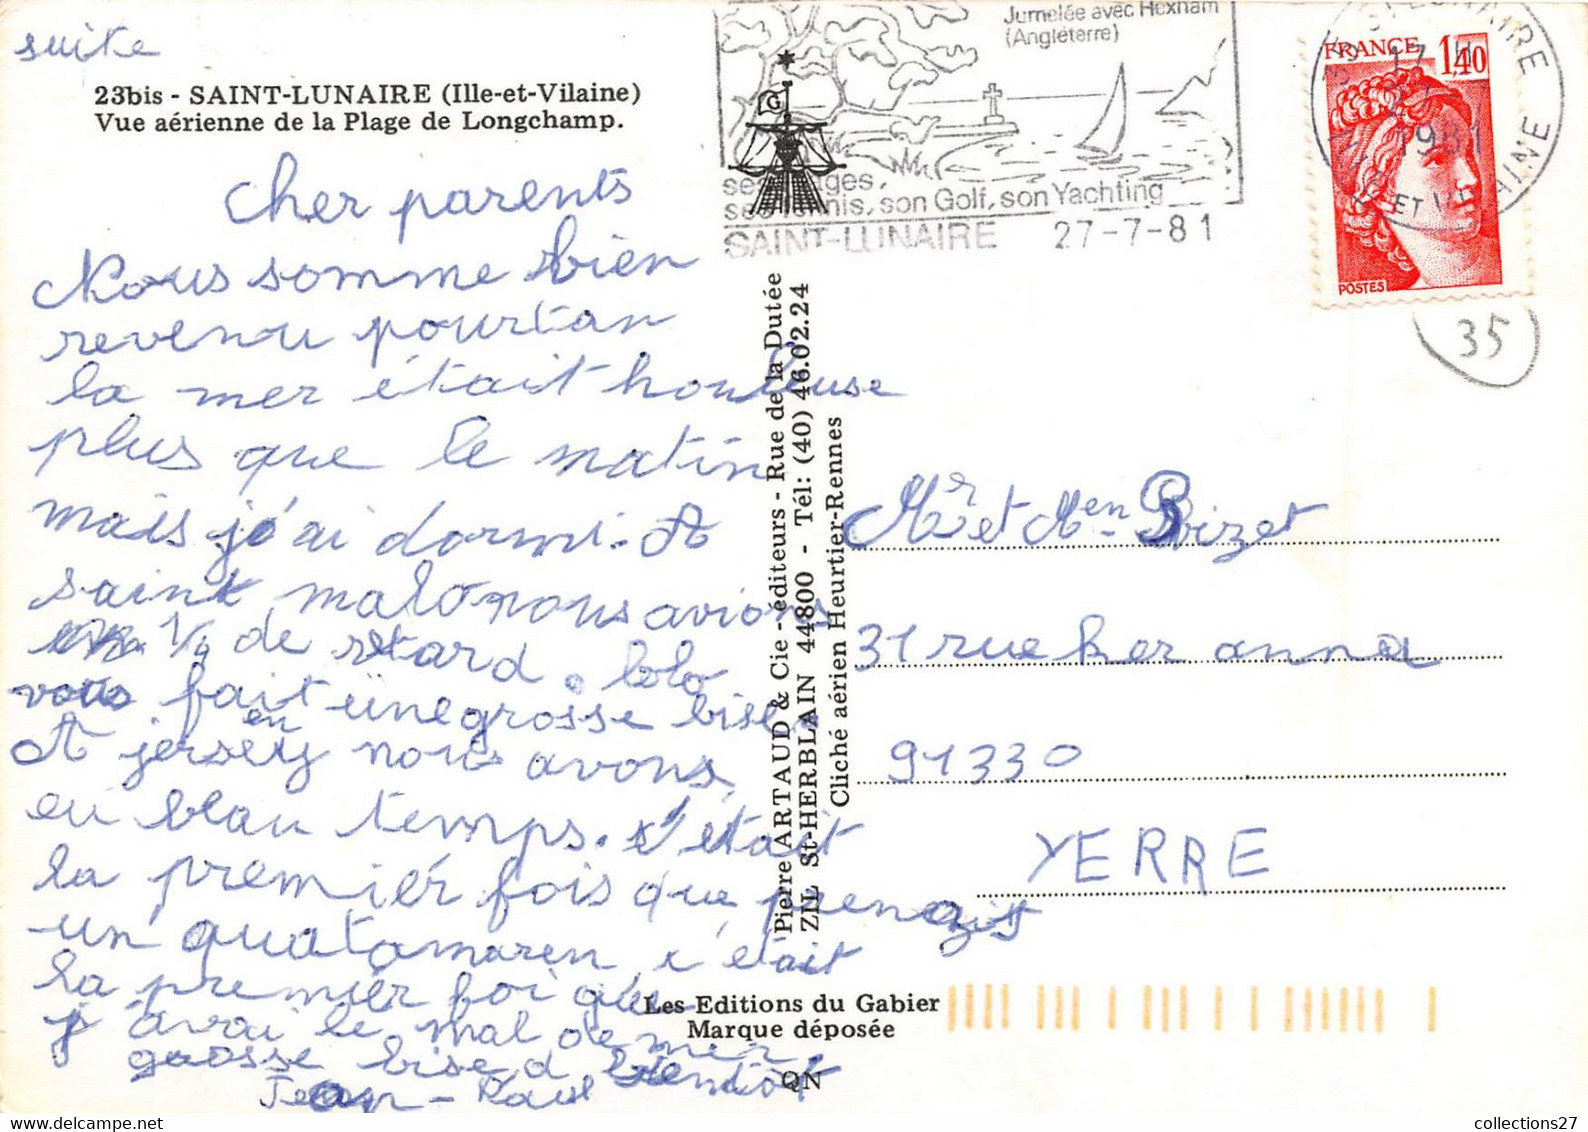 suite
23bis - SAINT-LUNAIRE (Ille-et-Vilaine)
Vue aérienne de la Plage de Longchamp.
cher parents
Nous somme bien
revenu pourtan
la mer était houleuse
plus que le matin
mais j'ai dormi. A
saint malo nous avions
1/4 de retard. lolo
vous fait une grosse bise.
A jersey nous avons
en
eu blau temps. c'était
la premier fois que prenais
un quatamaren c'était
la premier foi que
j'avai le mal de mer.
grosse bise
Jean-Paul
Jumelée avec Hexham
(Angleterre)
ses plages,
ses Tennis, son Golf, son Yachting
SAINT-LUNAIRE 27-7-81
FRANCE 1,40
POSTES
ST LUNAIRE
17 H
1981
ILLE ET VILAINE
35
Pierre ARTAUD & Cie - éditeurs - Rue de la Dutée
ZIL St-HERBLAIN 44800 - Tél: (40) 46.02.24
Cliché aérien Heurtier-Rennes
Mr et Men Bizet
31 rue ker anna
91330
YERRE
Les Editions du Gabier
Marque déposée
QN
collections27